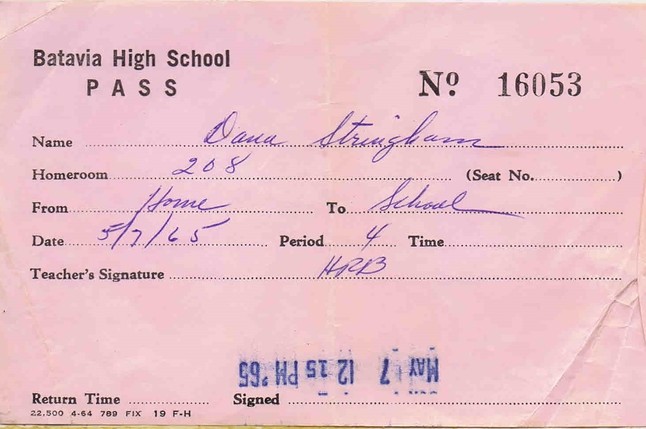 Batavia High School
PASS
Nº 16053
Name Dana Stringham
Homeroom 208 (Seat No. )
From Home To School
Date 5/7/65 Period 4 Time
Teacher's Signature HRB
MAY 7 12 15 PM '65
Return Time Signed
22,500 4-64 789 FIX 19 F-H